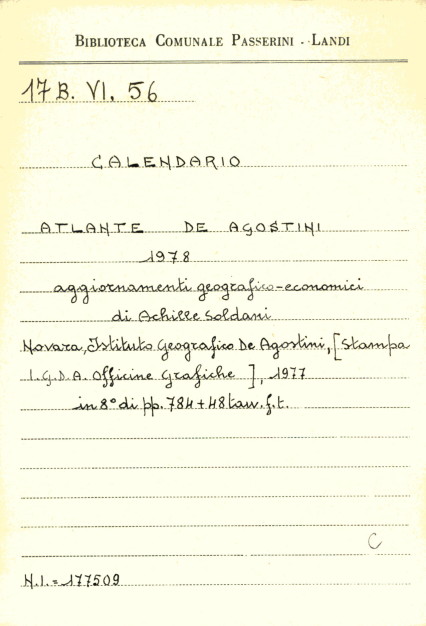 BIBLIOTECA COMUNALE PASSERINI - LANDI
17 B. VI. 56
CALENDARIO
ATLANTE DE AGOSTINI
1978
aggiornamenti geografico-economici
di Achille Soldani
Novara, Istituto Geografico De Agostini, [Stampa
I.G.D.A. Officine Grafiche], 1977
in 8° di pp. 784 + 48 tav. f.t.
C
N.I. = 177509